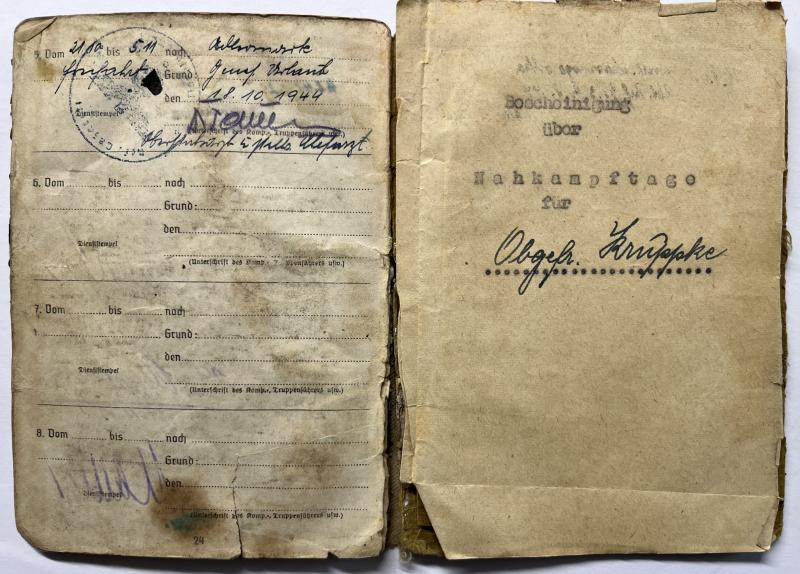 5. Vom 21.10 bis 5.11 nach
Grund: Urlaub
den 18.10.1944
Dienststempel
(Unterschrift des Komp.-, Truppenführers usw.)
6. Vom bis nach
Grund:
den
Dienststempel
(Unterschrift des Komp.-, Truppenführers usw.)
7. Vom bis nach
Grund:
den
Dienststempel
(Unterschrift des Komp.-, Truppenführers usw.)
8. Vom bis nach
Grund:
den
Dienststempel
(Unterschrift des Komp.-, Truppenführers usw.)
24
Bescheinigung
über
Nahkampftage
für
Obgefr. Kruppke